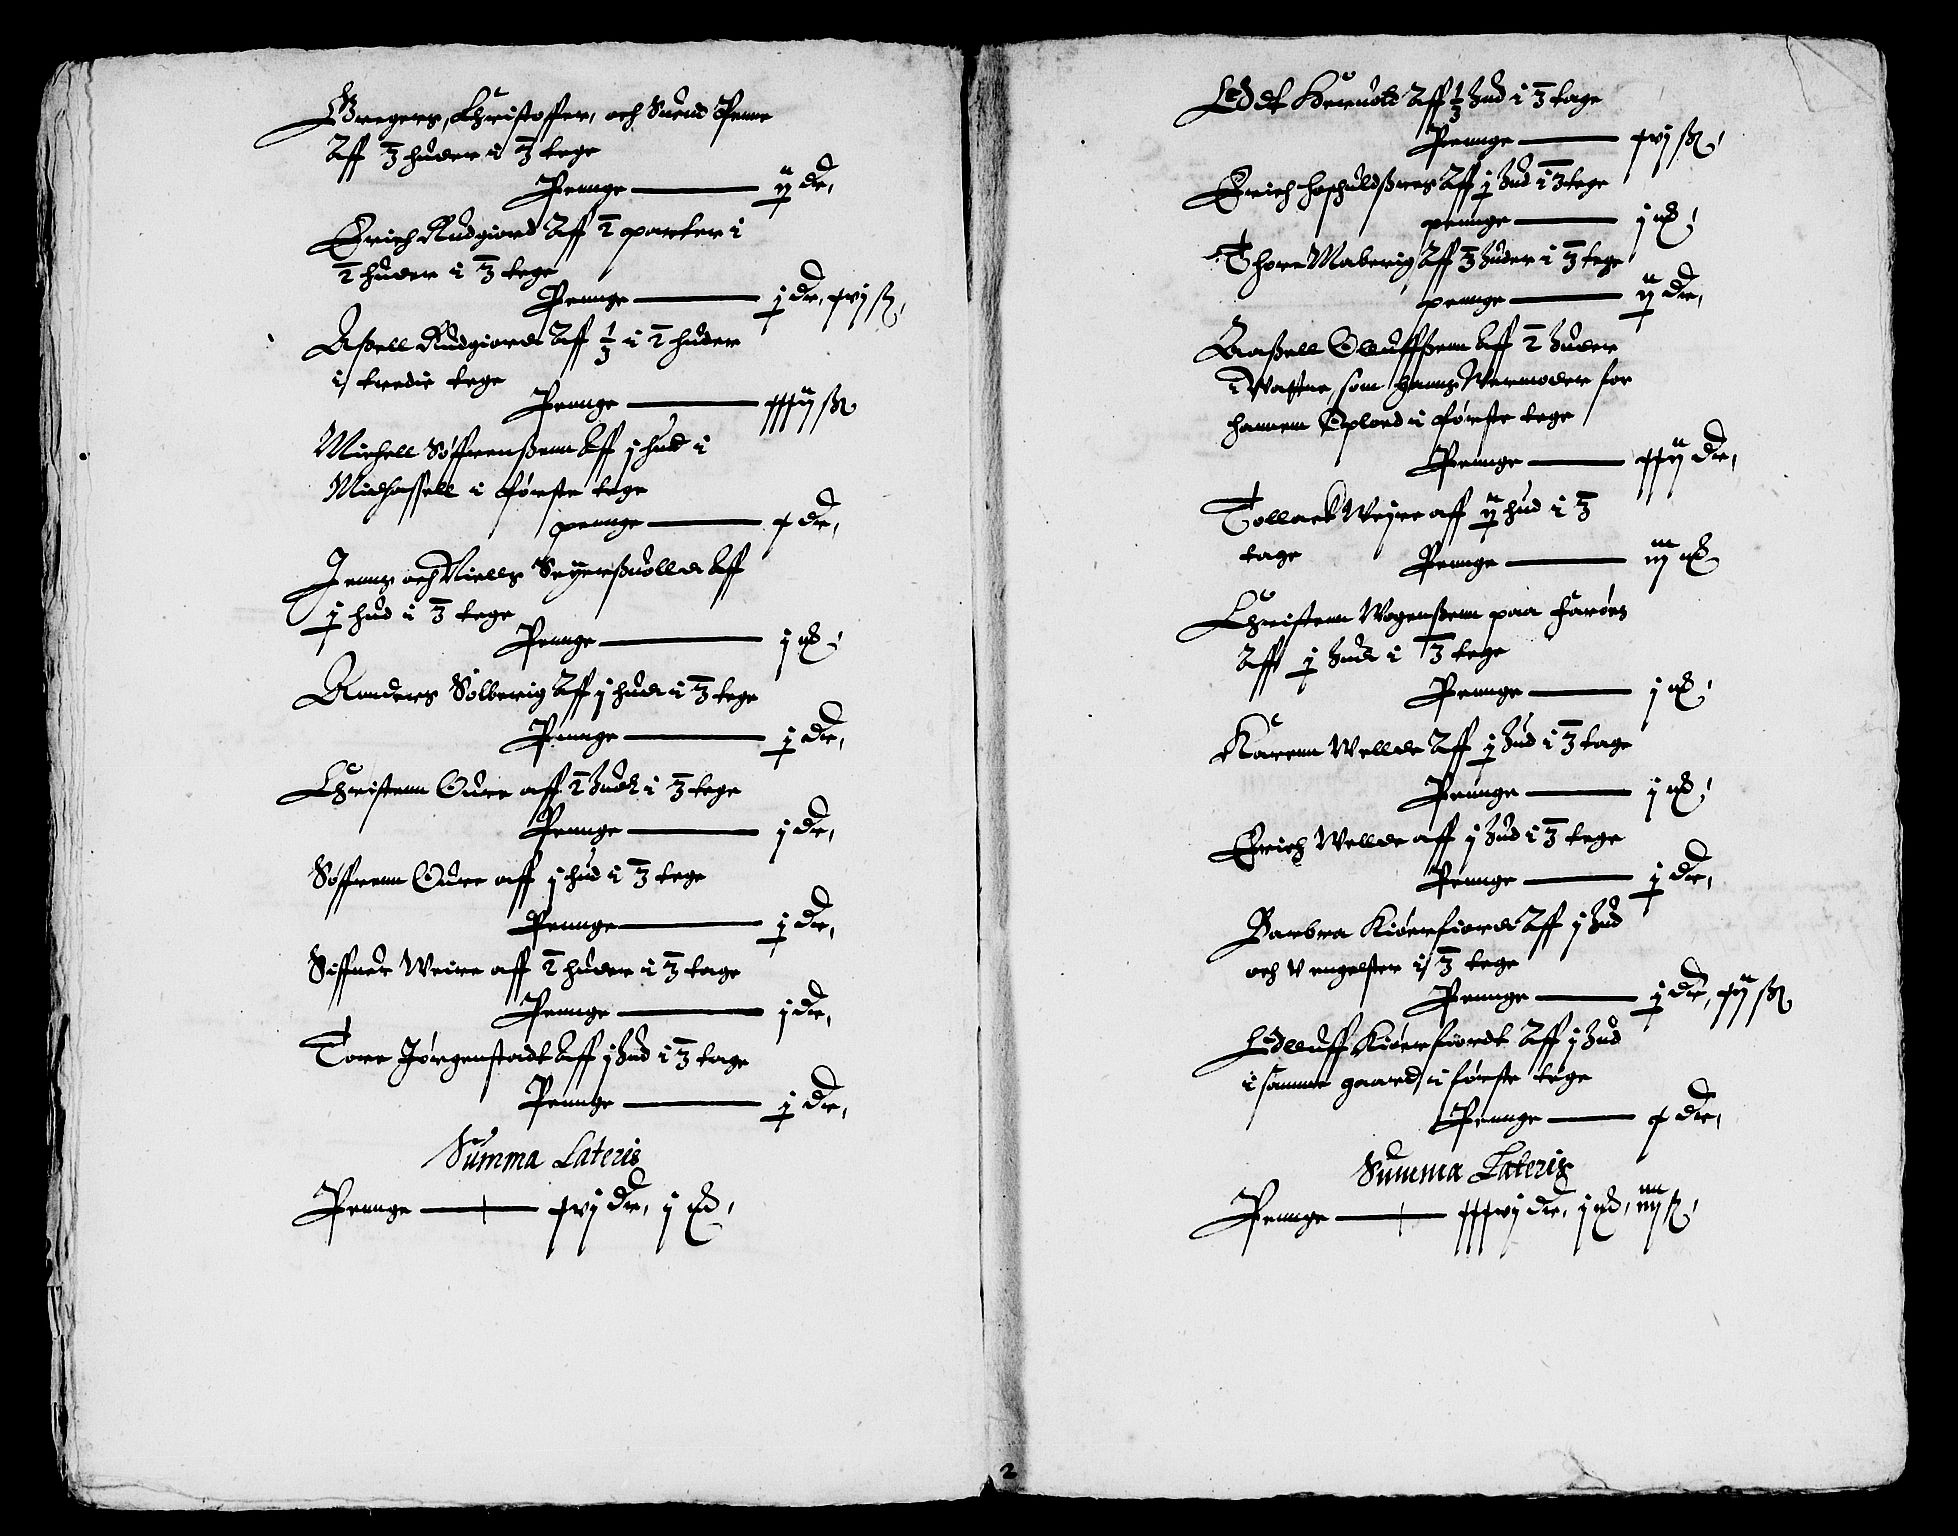 Gregers, Christoffer, och Suend Penne
Aff 3 huder i 3 tege
Penge — ij dr,
Erich Rudgiord Aff 2 parter i
2 huder i 3 tege
Penge — j dr, xvj ß,
Aßell Rudgiord Aff 1/3 i 2 huder
i tredie tege
Penge — xxxij ß,
Michell Søffrenßenn Aff j hud i
Midhassell i første tege
penge — x dr,
Jenns och Niells Aff
j hud i 3 tege
Penge — j
Anders Solberig Aff j hud i 3 tege
Penge — j dr,
Christenn Oure aff 2 hudr i 3 tege
Penge — j dr,
Søffrenn Oure aff j hud i 3 tege
Penge — j dr,
Siffuer Weire aff 2 huder i 3 tage
Penge — j dr,
Tore Jørgenstadt Aff j hud i 3 tage
Penge — j dr,
Summa Lateris
Penge — xvj dr, j
Aff 1/3 hud i 3 tage
Penge — xvj ß,
Erich Aff j hud i 3 tege
penge — j
Thore Maberig Aff 3 huder i 3 tege
penge — ij dr,
Aaßell Olluffßenn Aff 2 huder
i som hanns Wermoder for
hannem i første tege
Penge — xxij dr,
Tollack Weyre aff ij hud i 3
tage Penge — iij
Christenn Mogenßenn paa Farøen
Aff j hud i 3 tege
Penge — j
Karenn Wellde Aff j hud i 3 tage
Penge — j
Erich Wellde aff j hud i 3 tege
Penge — j dr,
Barbra Kiøerfiord Aff j hud
och v engelster i 3 tege
Penge — j dr, xij ß,
Kiøerfiordt Aff j hud
i samme gaard i første tege
Penge — x dr,
Summa Lateris
Penge — xxxvj dr, j , iiij ß,
2